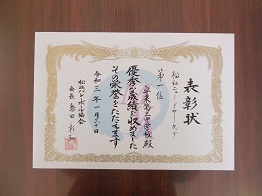 表彰状
松江ニューイヤーカップ
第一位
中学校 殿
優秀な成績を収めました
その栄誉をたたえます
令和三年一月
松江バレーボール協会
会長